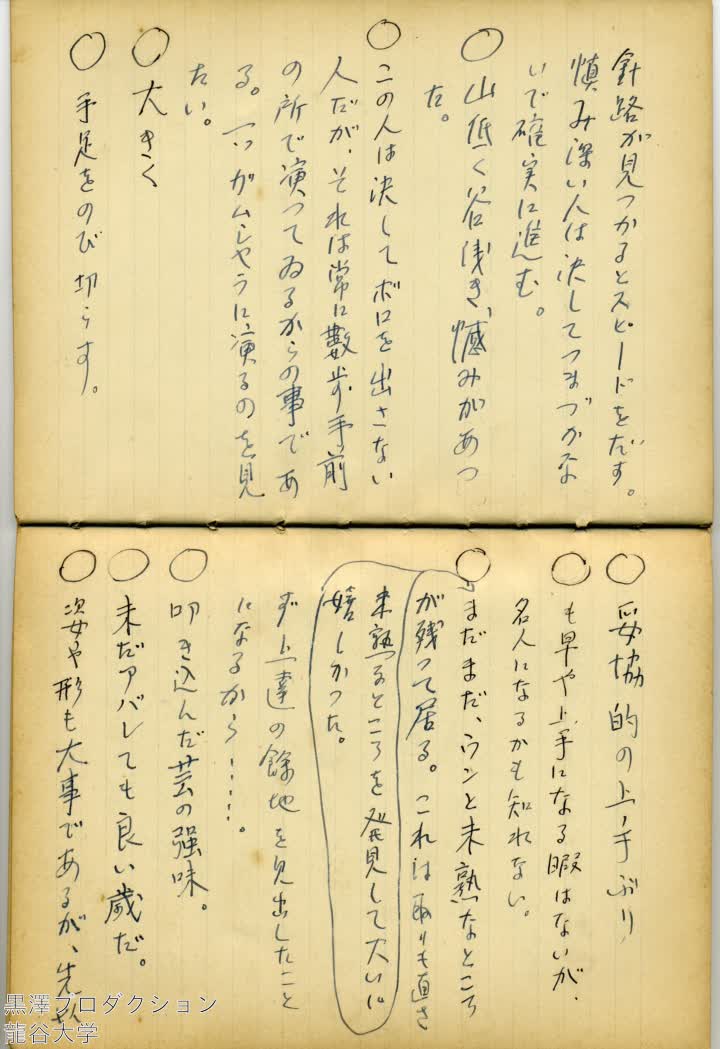 針路が見つかるとスピードをだす。
慎み深い人は決してつまづかな
いで確実に進む。
○山低く谷浅き、憾みがあつ
た。
○この人は決してボロを出さない
人だが、それは常に数歩手前
の所で演つてゐるからの事であ
る。一つガムシャラに演るのを見
たい。
○大きく
○手足をのび切らす。
○妥協的の上手ぶり
○も早や上手になる暇はないが、
名人になるかも知れない。
○まだまだ、ウンと未熟なところ
が残つて居る。これは取りも直さ
未熟るところを発見して大いに
嬉しかつた。
ず上達の餘地を見出したこと
になるから……。
○叩き込んだ芸の強味。
○未だアバレても良い歳だ。
○姿や形も大事であるが、先
黒澤プロダクション
龍谷大学